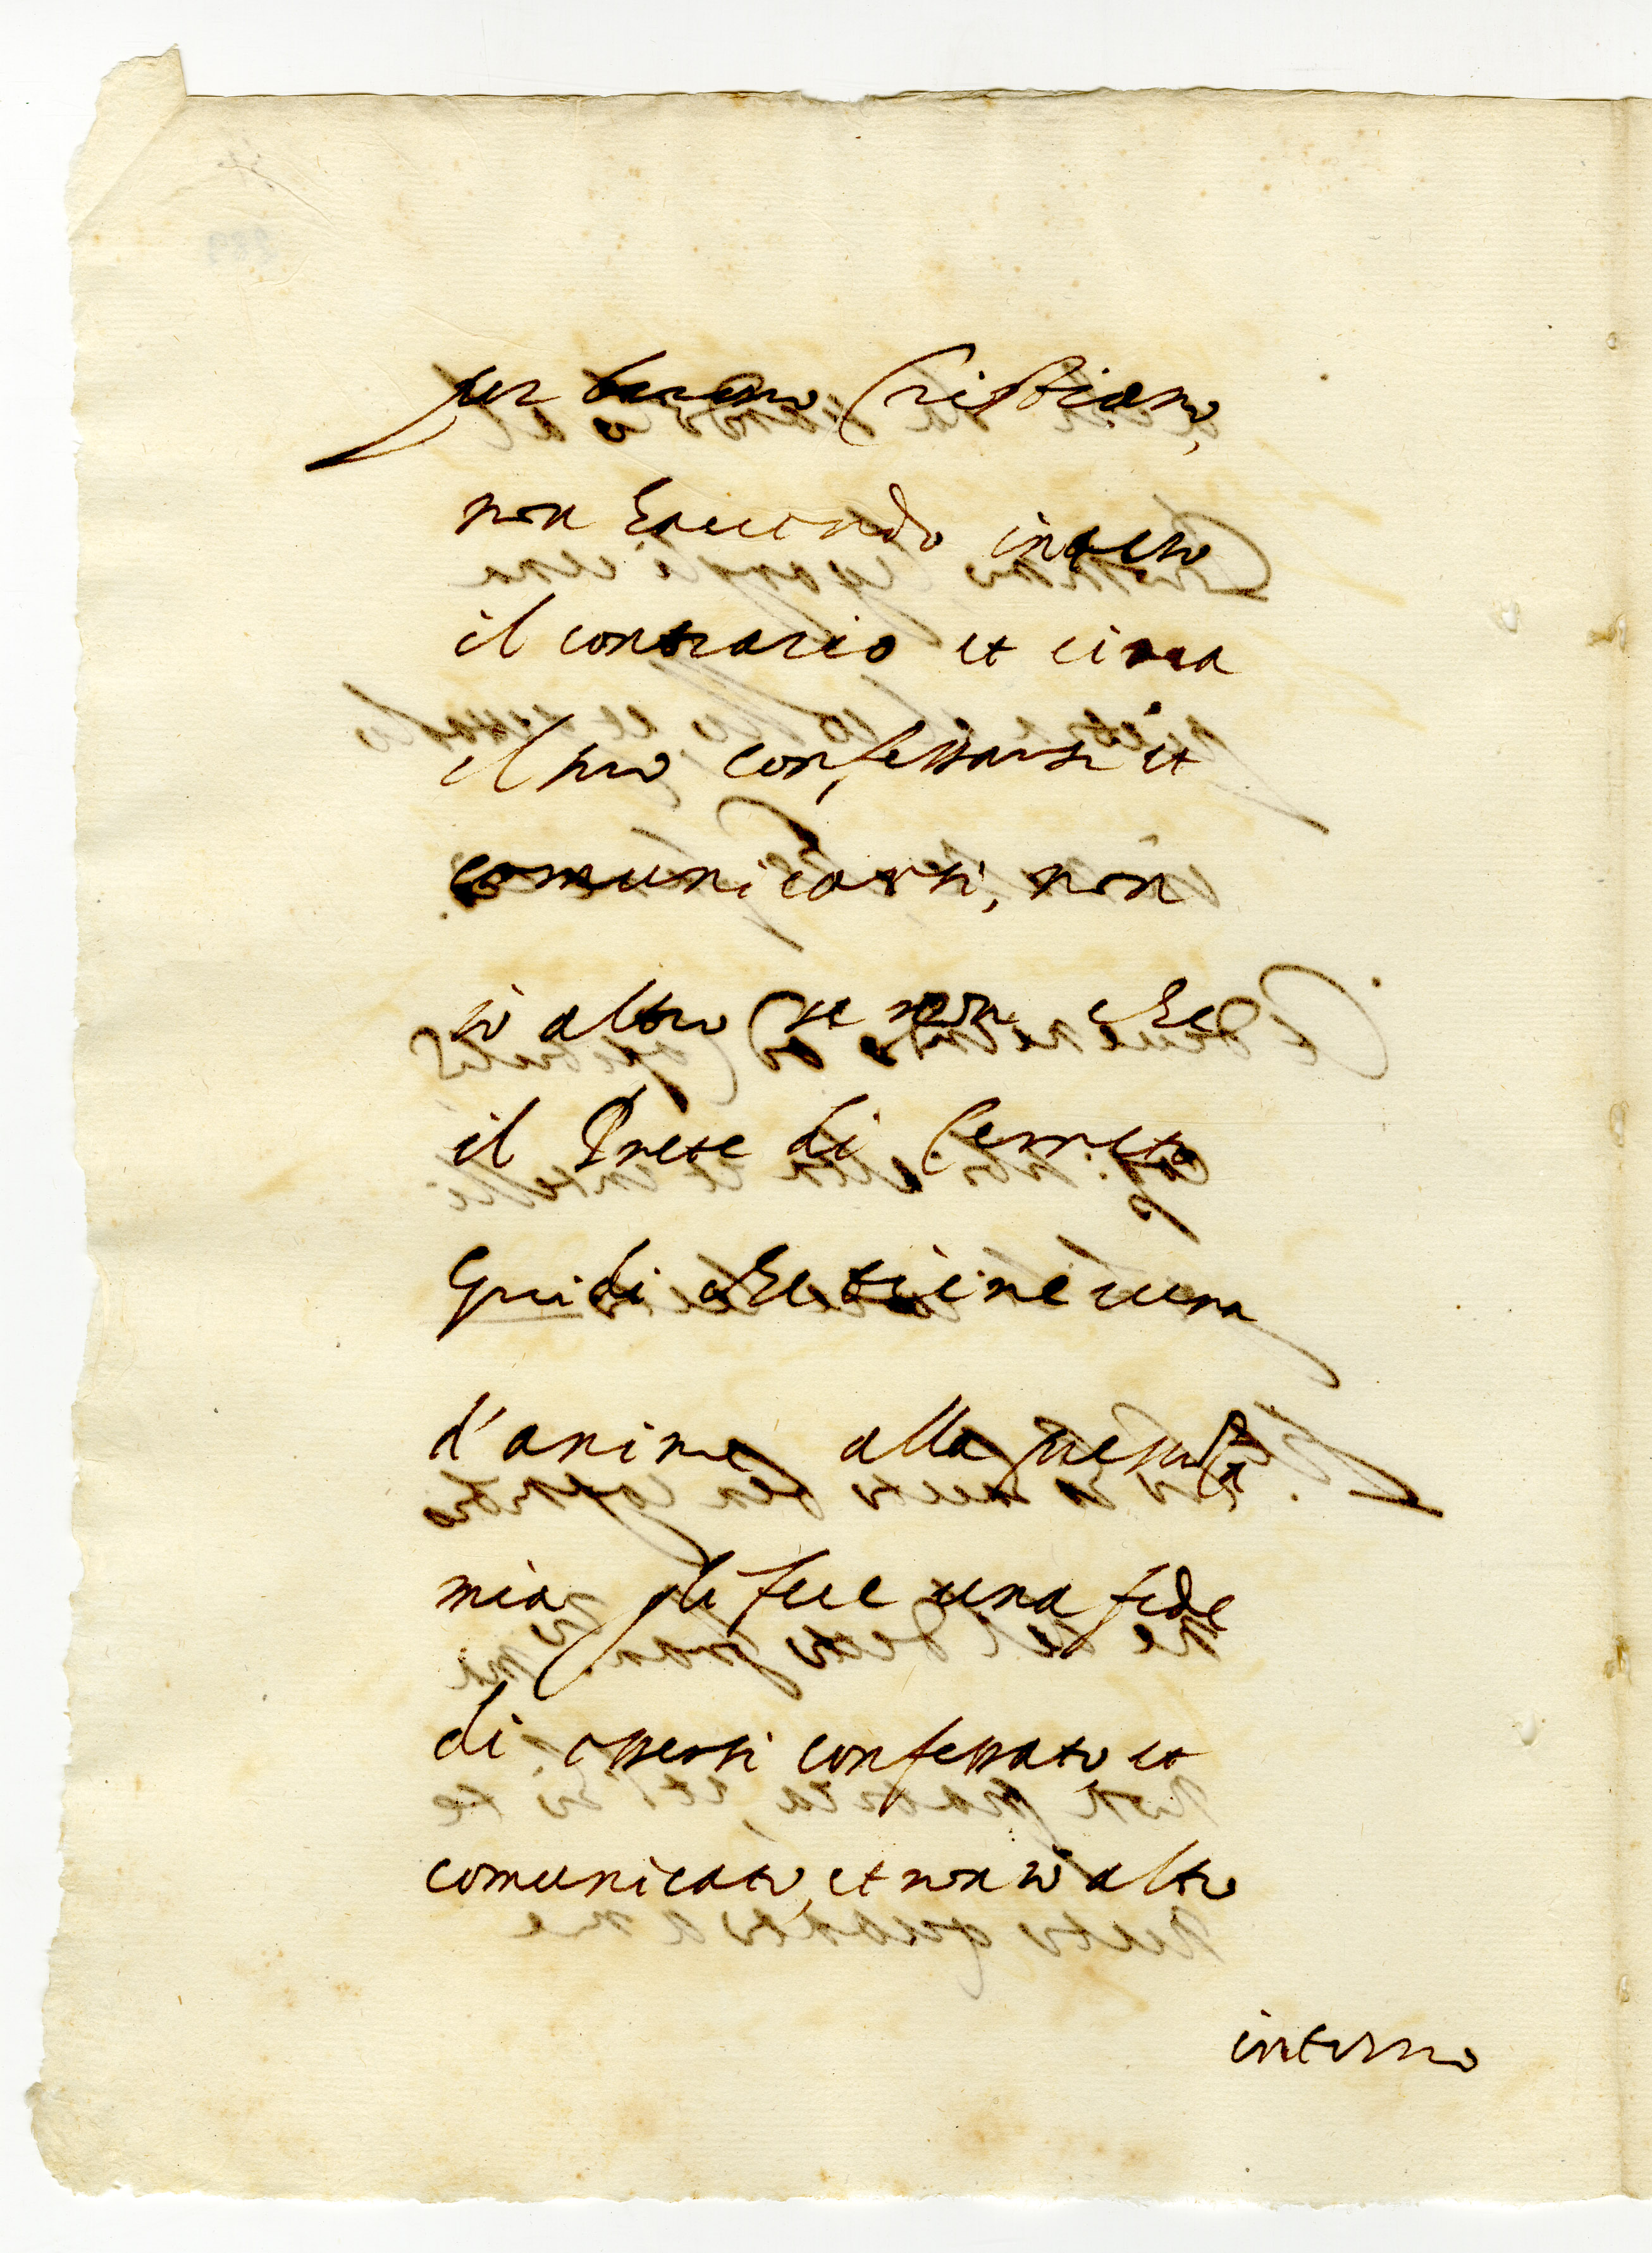 per buono Cristiano,
non havendo inteso
il contrario et circa
il suo confessarsi et
comunicarsi, non
sò altro se non che
il Prete di Cerreto
Guidi che tiene cura
d'anime alla
mia gli fece una fede
di essersi confessato, et
comunicato, et non sò altro
intorno